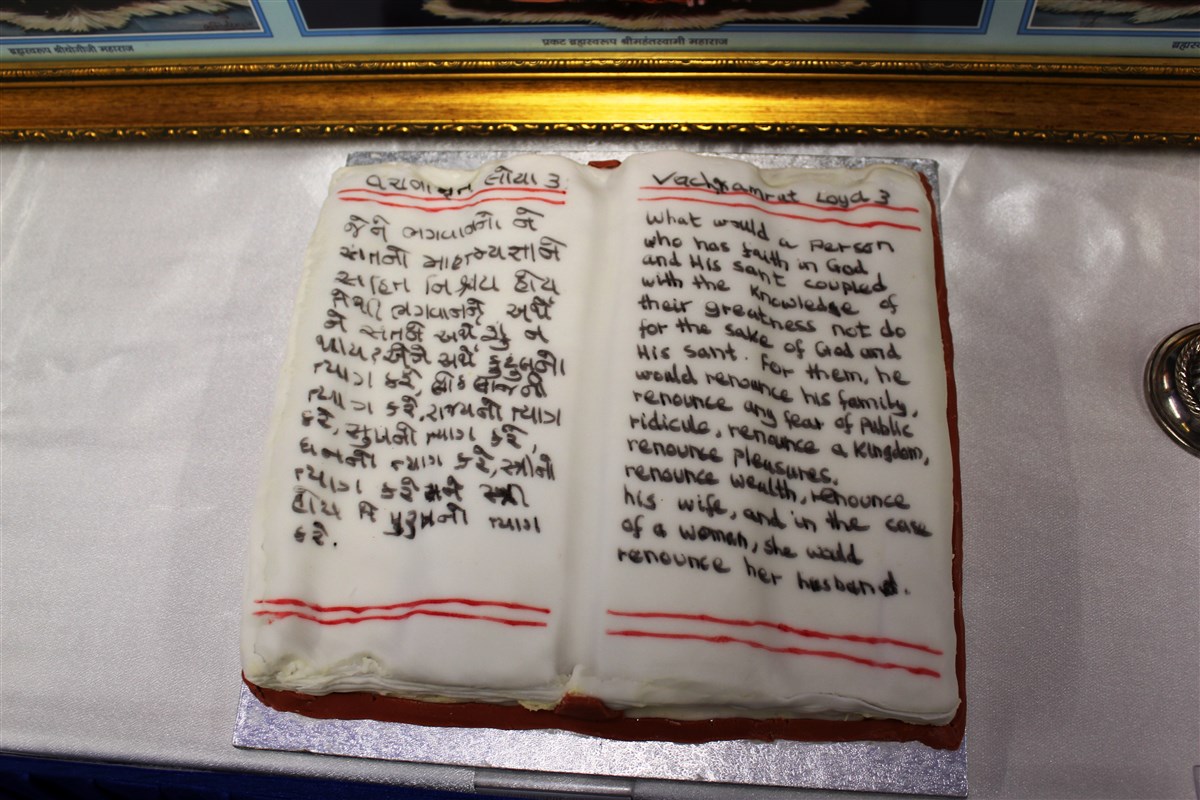 ब्रह्मस्वरूप श्रीयोगीजी महाराज
प्रकट ब्रह्मस्वरूप श्रीमहंतस्वामी महाराज
વચનામૃત લોયા 3
જેને ભગવાનનો ને
સંતનો માહાત્મ્યજ્ઞાને
સહિત નિશ્ચય હોય
તેથી ભગવાનને અર્થે
ને સંતને અર્થે શું ન
થાય? એને અર્થે કુટુંબનો
ત્યાગ કરે, લોકલાજનો
ત્યાગ કરે, રાજ્યનો ત્યાગ
કરે, સુખનો ત્યાગ કરે,
ધનનો ત્યાગ કરે, સ્ત્રીનો
ત્યાગ કરે અને સ્ત્રી
હોય તે પુરુષનો ત્યાગ
કરે.
Vachnamrut Loya 3
What would a person
who has faith in God
and His sant coupled
with the knowledge of
their greatness not do
for the sake of God and
His sant. For them, he
would renounce his family,
renounce any fear of public
ridicule, renounce a kingdom,
renounce pleasures,
renounce wealth, renounce
his wife, and in the case
of a woman, she would
renounce her husband.